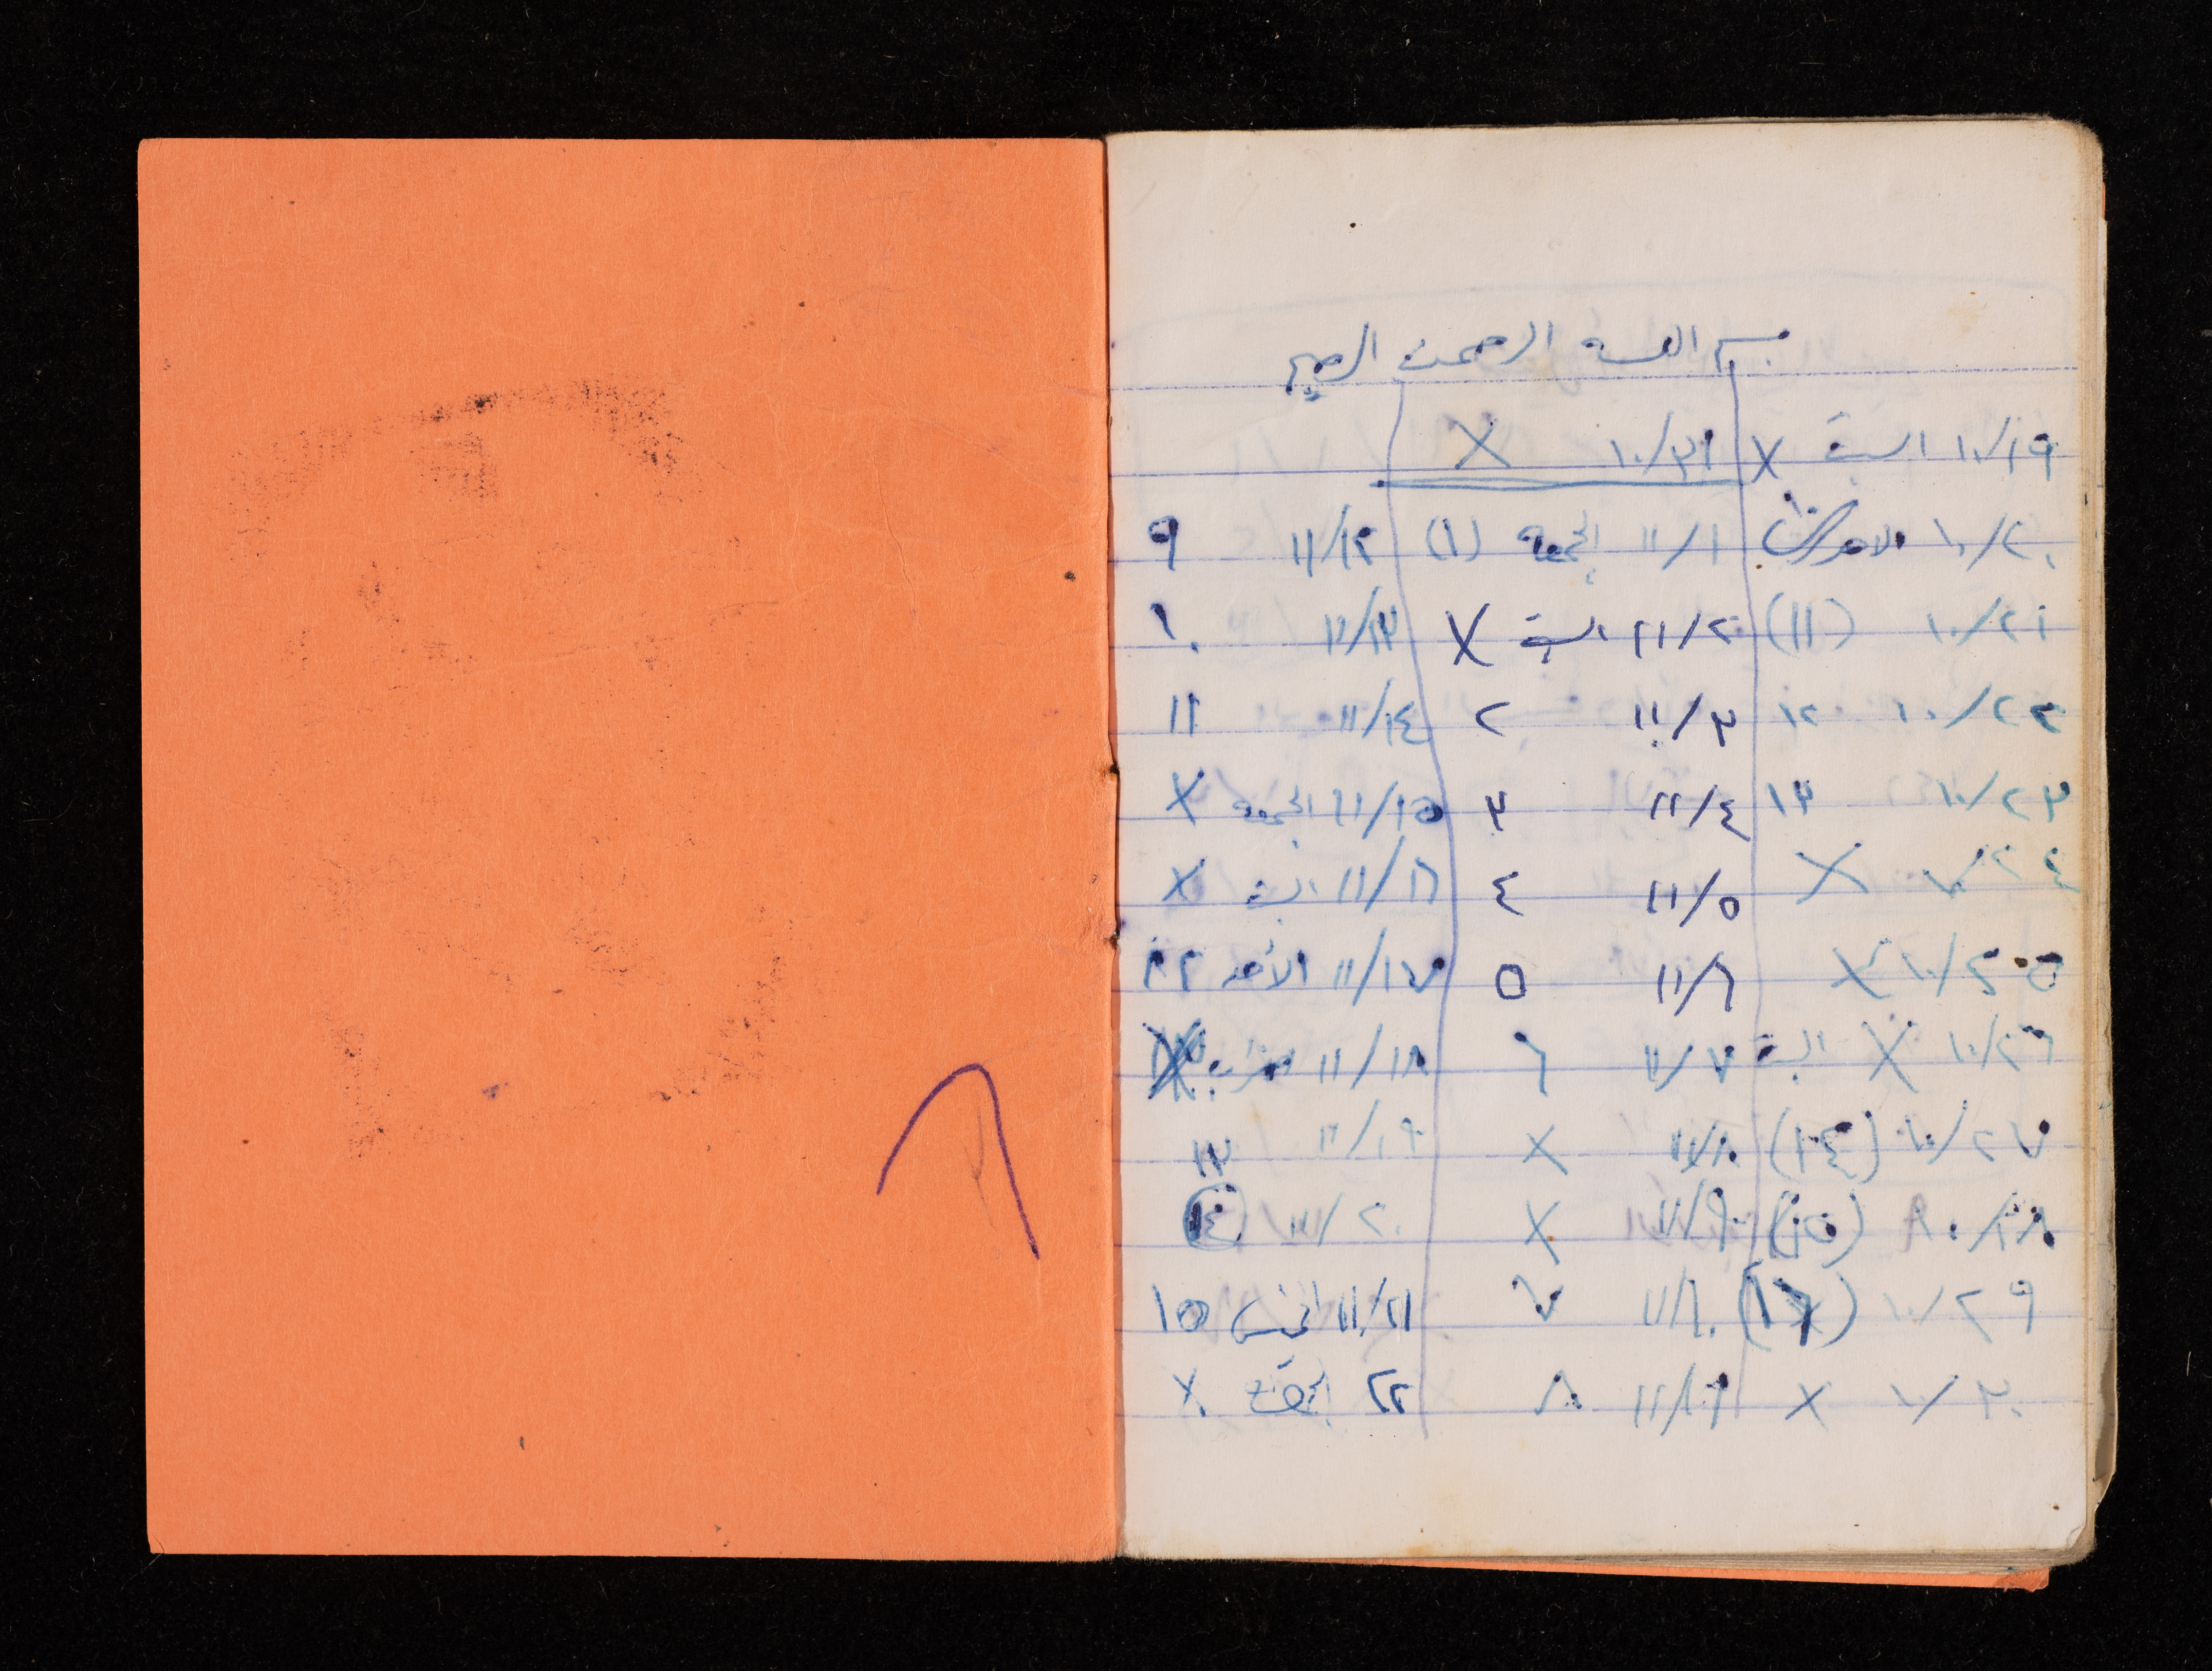 بسم الله الرحمن الرحيم
١٠/١٩ السبت X
١٠/٢٠ الاحد
١٠/٢١ (١١)
١٠/٢٢ ١٢
١٠/٢٣ ١٣
١٠/٢٤ X
١٠/٢٥ X
١٠/٢٦ X السبت
١٠/٢٧ (١٤)
١٠/٢٨ (١٥)
١٠/٢٩ (١٦)
١٠/٣٠ X
١٠/٣١ X
١١/١ الجمعة (١)
١١/٢ السبت X
١١/٣ ٢
١١/٤ ٣
١١/٥ ٤
١١/٦ ٥
١١/٧ ٦
١١/٨ X
١١/٩ X
١١/١٠ ٧
١١/١١ ٨
١١/١٢ ٩
١١/١٣ ١٠
١١/١٤ ١١
١١/١٥ الجمعه X
١١/١٦ السبت X
١١/١٧ الأحد ١٢
١١/١٨
١١/١٩ ١٣
١١/٢٠ ١٤
١١/٢١ الخميس ١٥
٢٢ الجمعة X